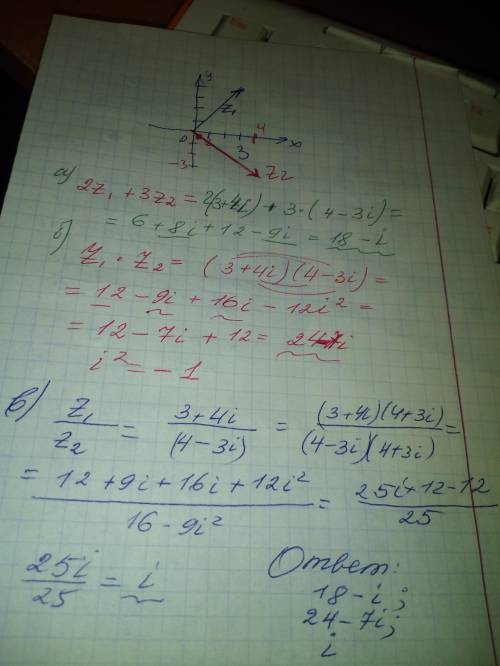 y
z₁
0 3 4 x
-3
z2
а) 2z₁ + 3z₂ = 2(3+4i) + 3·(4-3i) =
= 6 + 8i + 12 - 9i = 18 - i
б)
z₁ · z₂ = (3+4i)(4-3i) =
= 12 - 9i + 16i - 12i² =
= 12 - 7i + 12 = 24-7i
i² = -1
в) z₁/z₂ = 3+4i/(4-3i) = (3+4i)(4+3i)/(4-3i)(4+3i) =
= 12 + 9i + 16i + 12i²/16 - 9i² = 25i+12-12/25
25i/25 = i
Ответ:
18 - i;
24 - 7i;
i